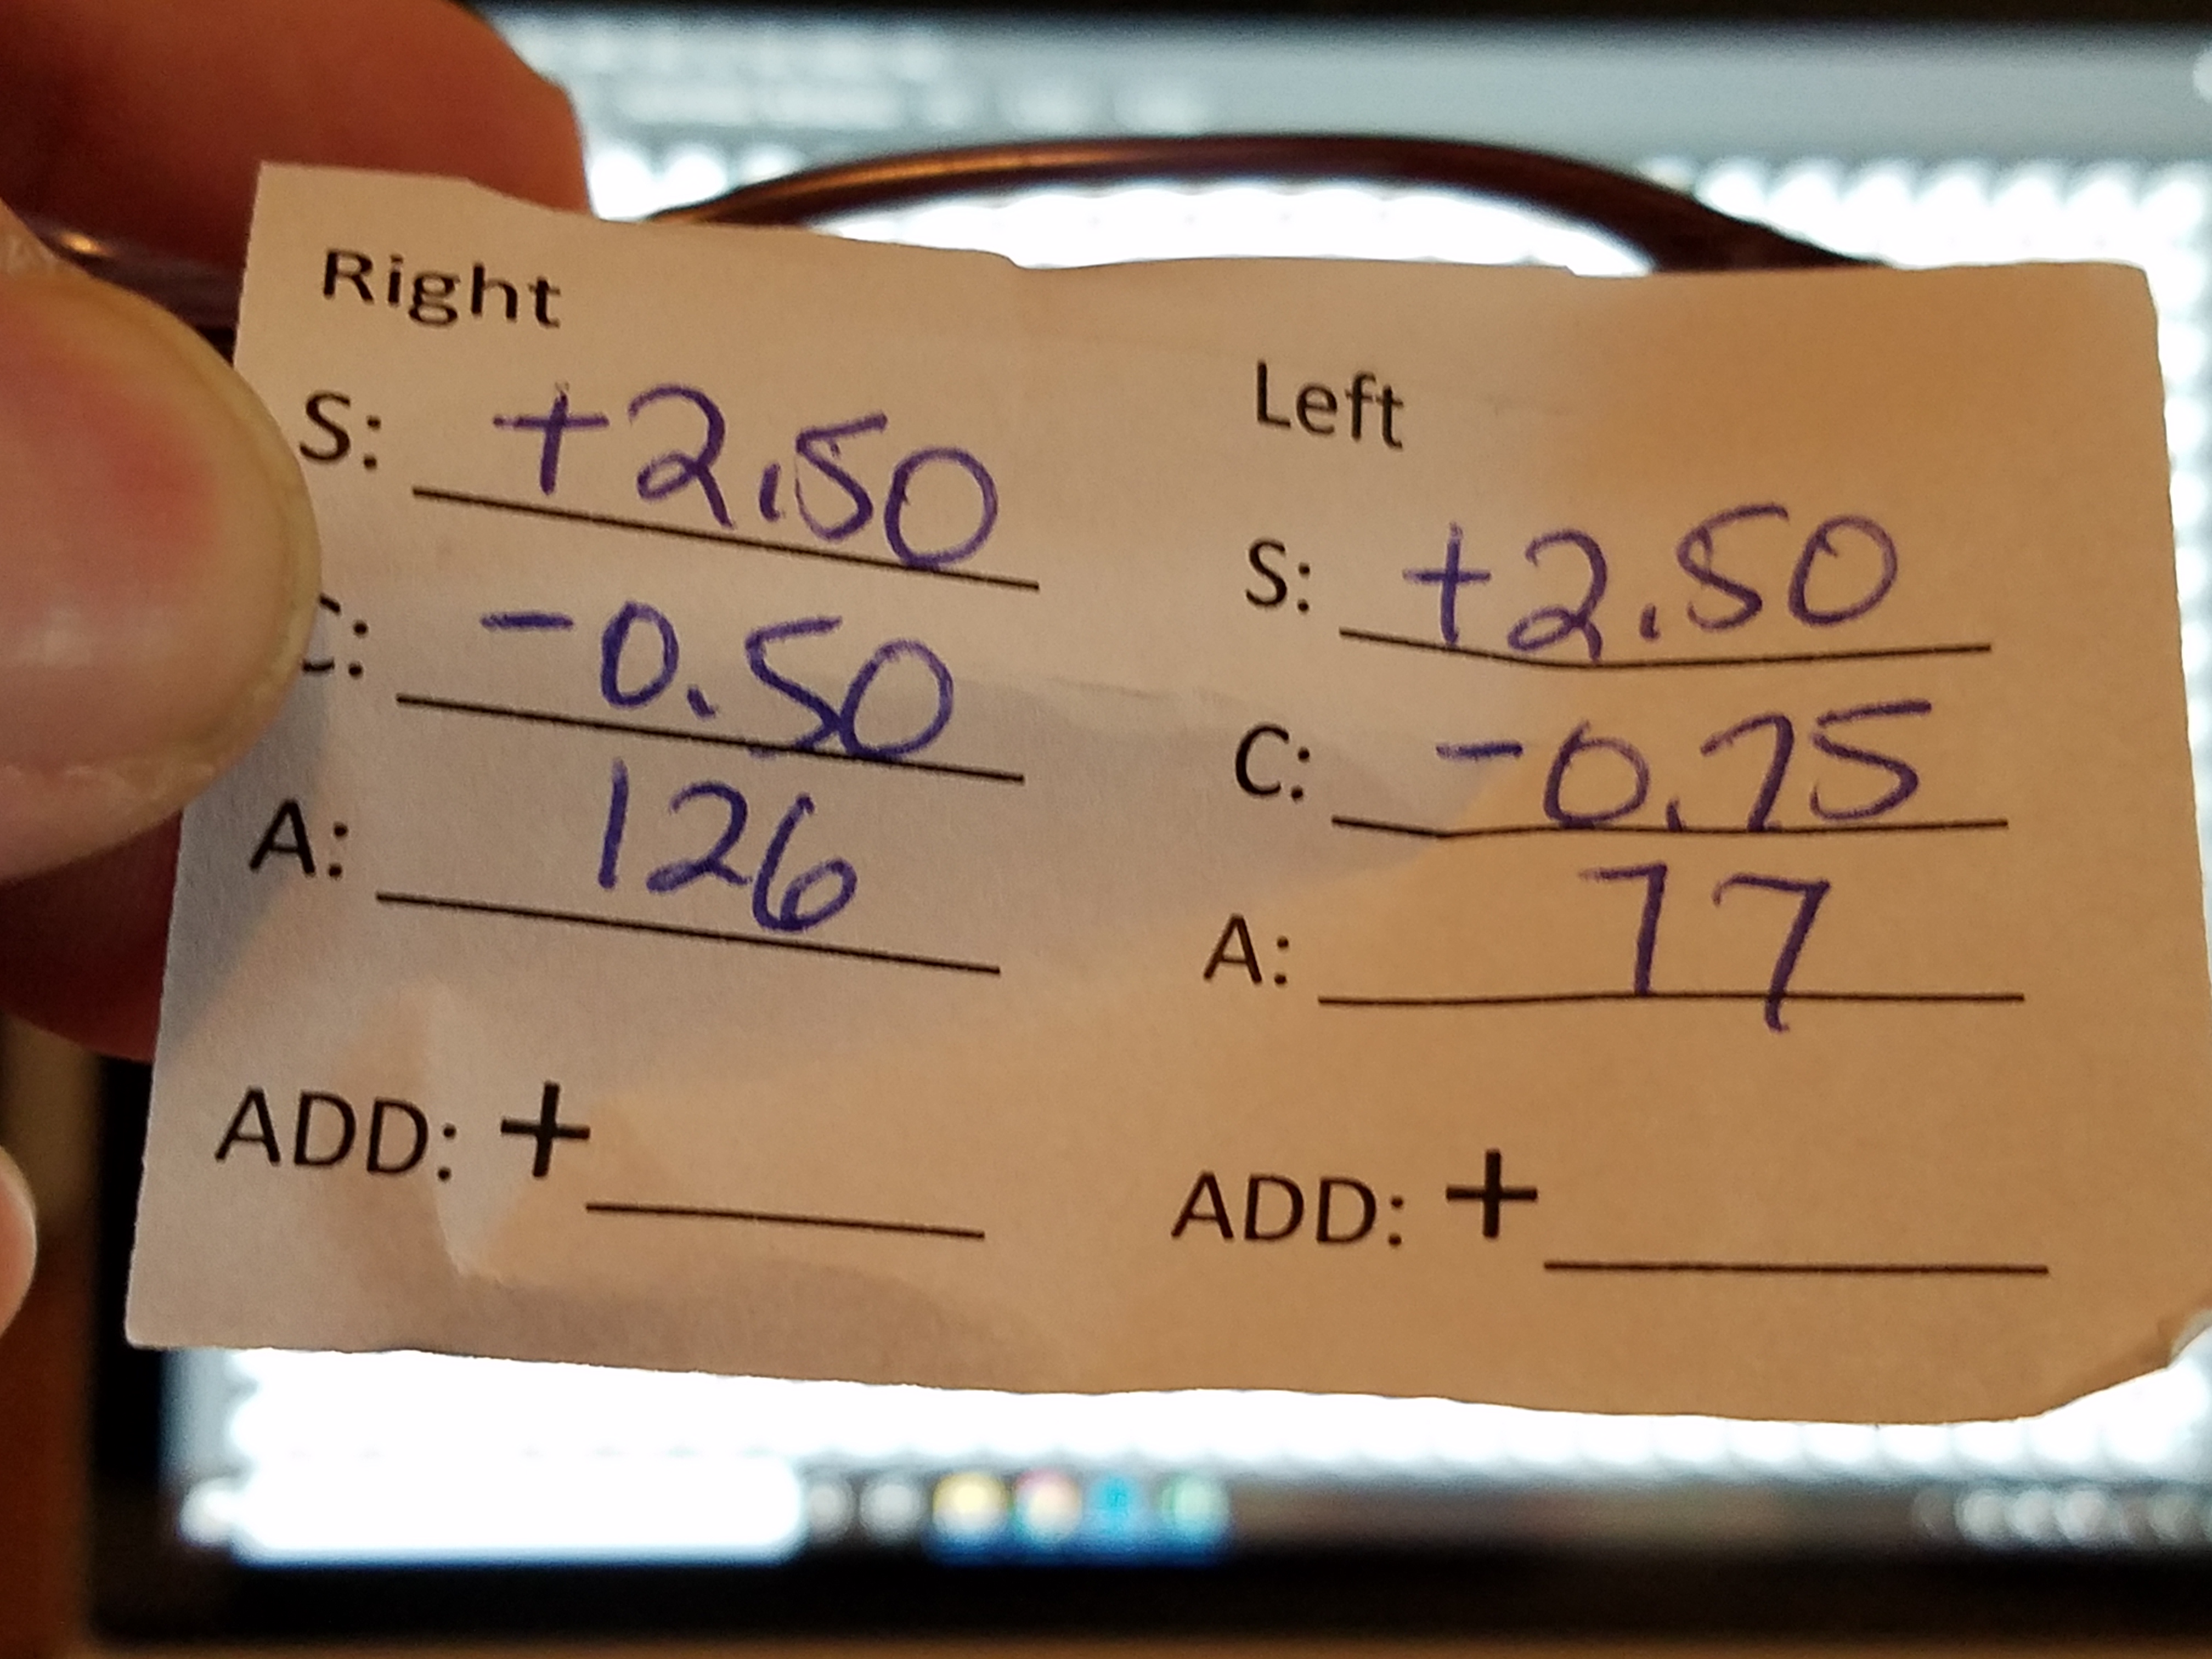 Right
S: +2.50
C: -0.50
A: 126
ADD: +
Left
S: +2.50
C: -0.75
A: 77
ADD: +